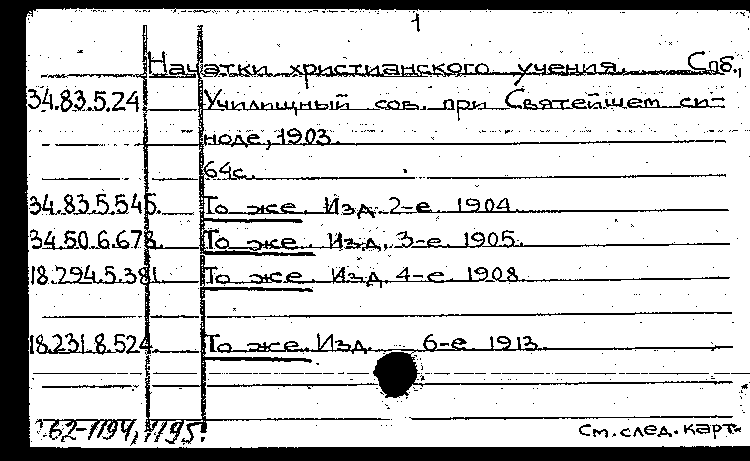 1
Начатки христианского учения. Спб.,
34.83.5.24 Училищный сов. при Святейшем си-
ноде, 1903.
64с.
34.83.5.545. То же. Изд. 2-е. 1904.
34.50.6.678. То же. Изд. 3-е. 1905.
18.294.5.381. То же. Изд. 4-е. 1908.
18.231.8.524. То же. Изд. 6-е. 1913.
62-1194, 1195. См. след. карт.